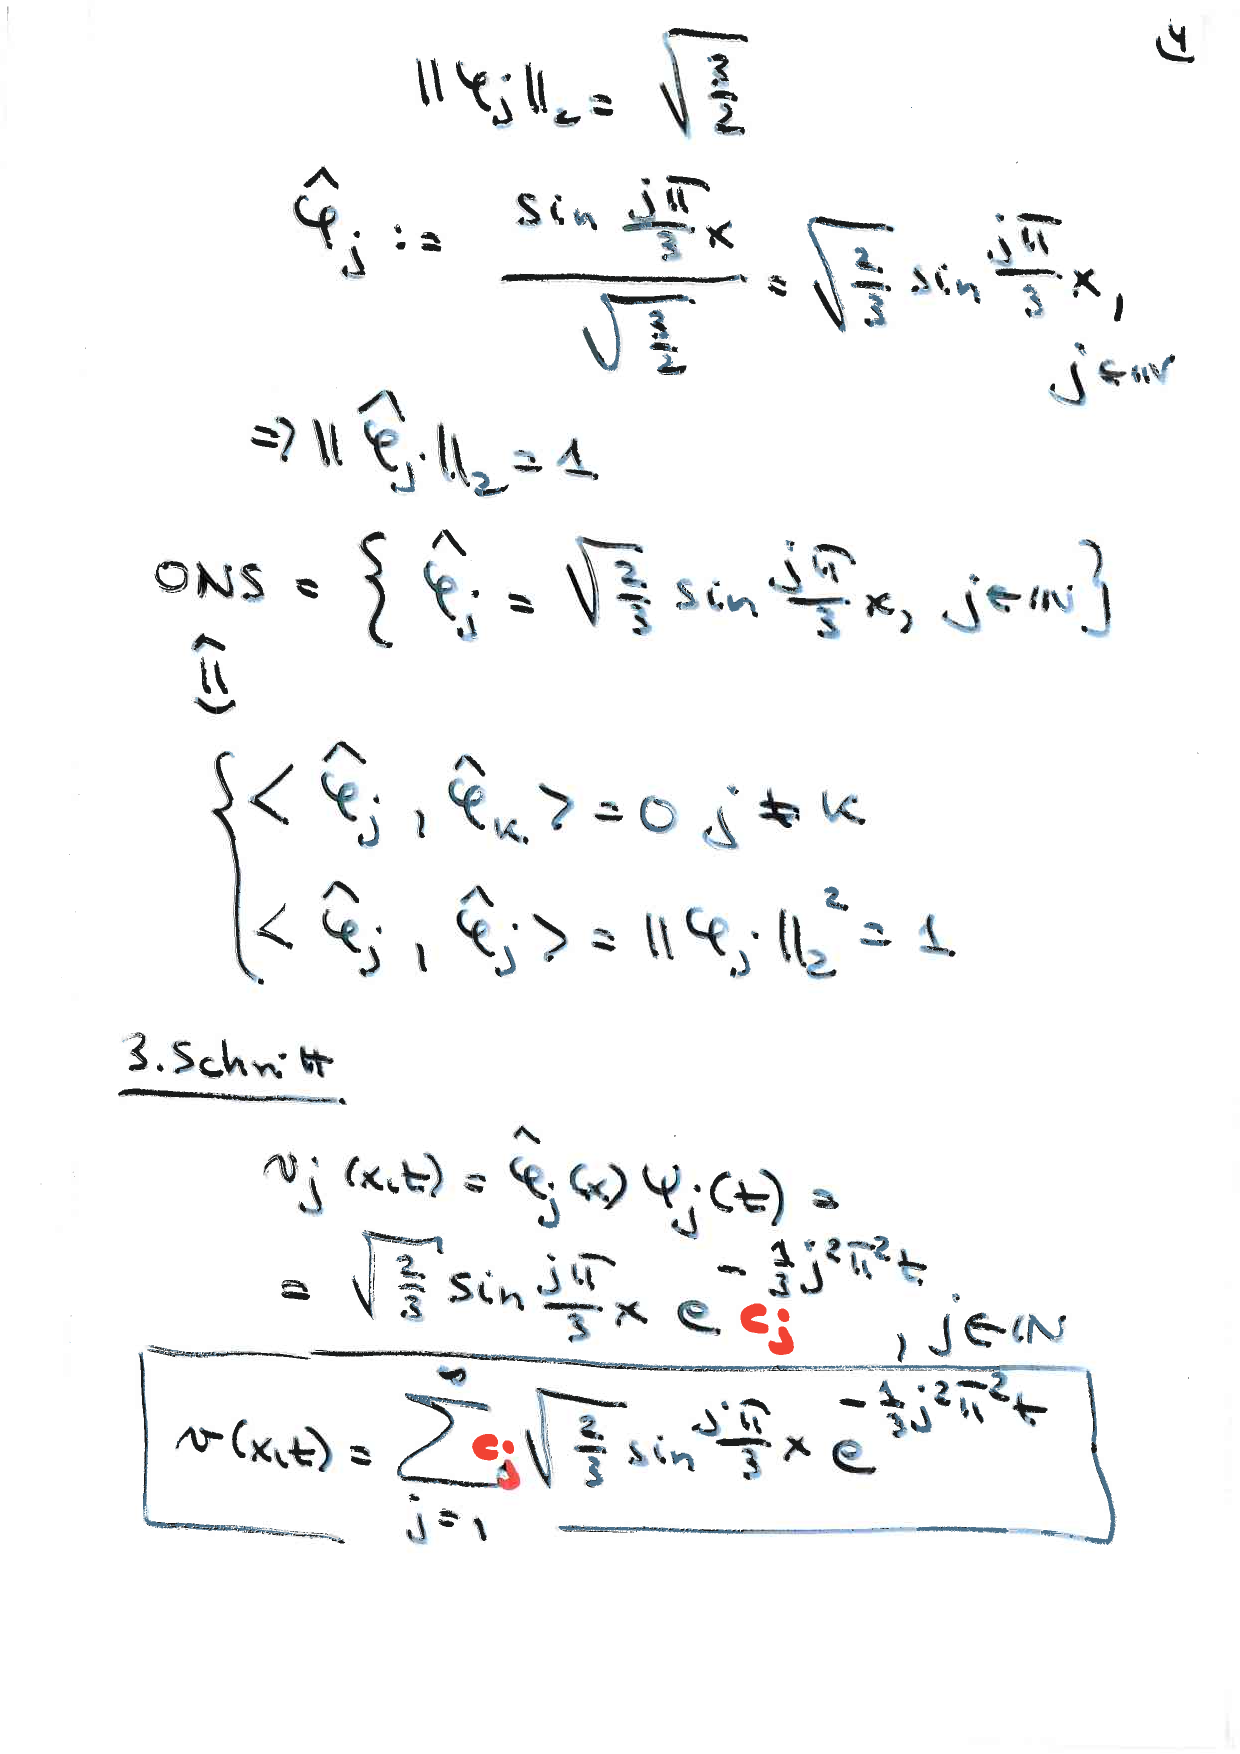 4
||φ_j||_2 = √(3/2)
φ̂_j := (sin (jπ/3) x) / √(3/2) = √(2/3) sin (jπ/3) x,
j ∈ ℕ
⇒ ||φ̂_j||_2 = 1
ONS = { φ̂_j = √(2/3) sin (jπ/3) x, j ∈ ℕ }
⇕
{ < φ̂_j, φ̂_k > = 0 j ≠ k
< φ̂_j, φ̂_j > = ||φ_j||_2^2 = 1
3. Schritt
v_j (x,t) = φ̂_j (x) ψ_j (t) =
= √(2/3) sin (jπ/3) x e^(-1/3 j^2 π^2 t) c_j , j ∈ ℕ
v(x,t) = ∑_{j=1}^∞ c_j √(2/3) sin (jπ/3) x e^(-1/3 j^2 π^2 t)